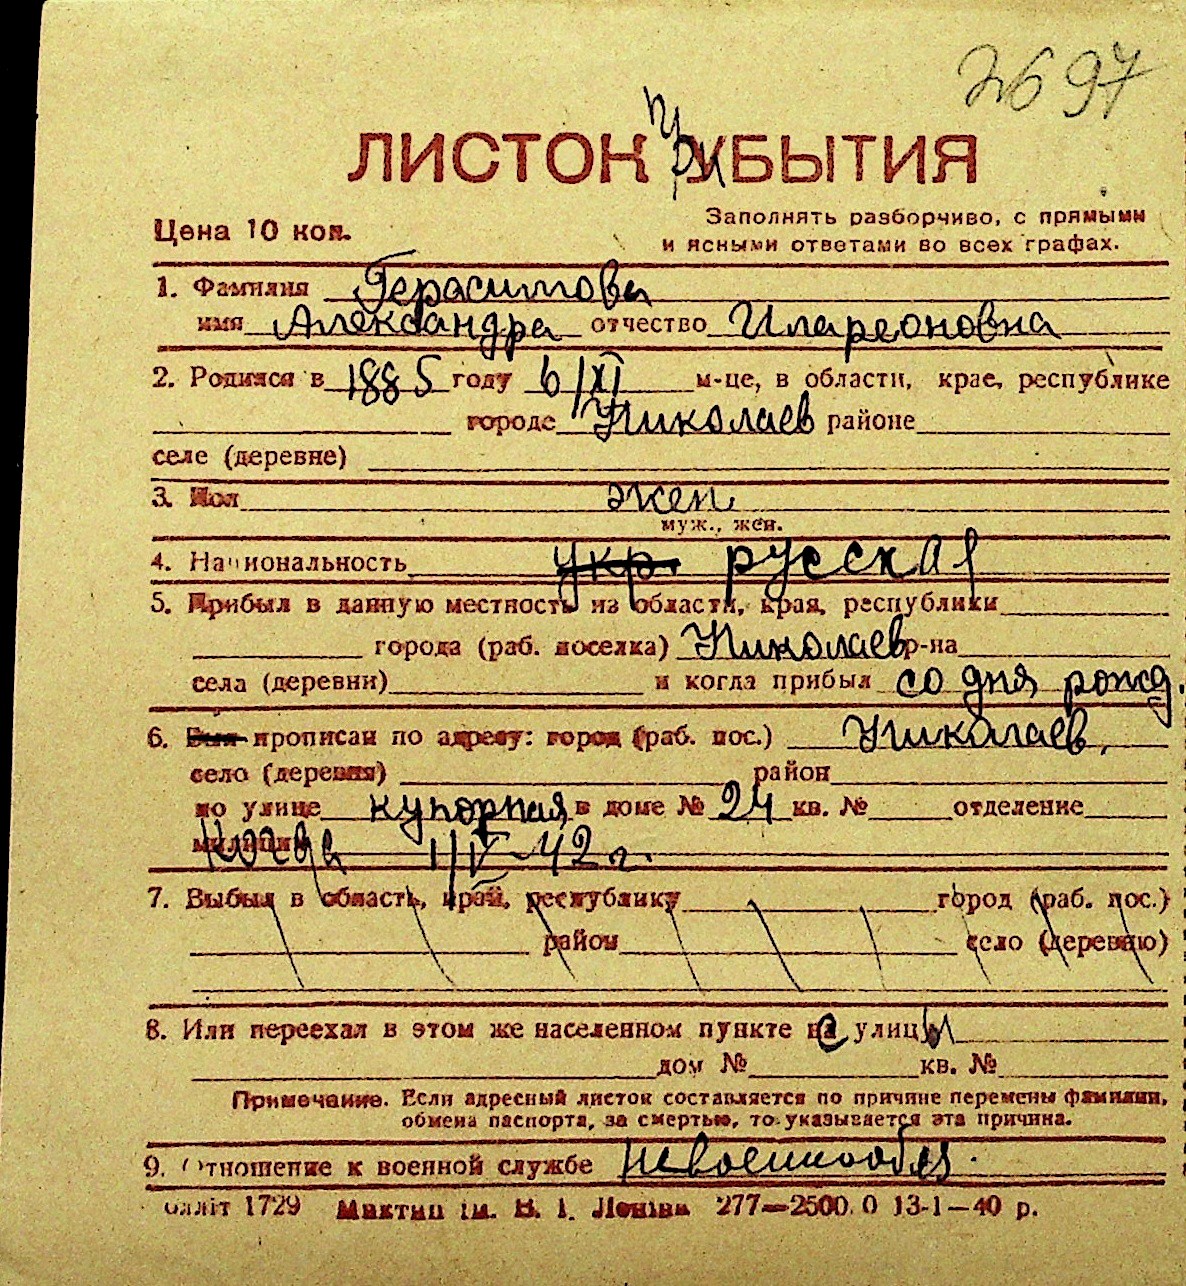 2697
ЛИСТОК ПРИБЫТИЯ
Цена 10 коп.
Заполнять разборчиво, с прямыми
и ясными ответами во всех графах.
1. Фамилия Герасимова
имя Александра отчество Илареоновна
2. Родился в 1885 году 6/XI м-це, в области, крае, республике
городе Николаев районе
селе (деревне)
3. Пол жен
муж., жен.
4. Национальность укр. русская
5. Прибыл в данную местность из области, края, республики
города (раб. поселка) Николаев р-на
села (деревни) и когда прибыл со дня рожд.
6. Был прописан по адресу: город (раб. пос.) Николаев,
село (деревня) район
по улице купорная в доме № 24 кв. № отделение
милиции когда 1/IV-42 г.
7. Выбыл в область, край, республику город (раб. пос.)
район село (деревню)
8. Или переехал в этом же населенном пункте с улицы
дом № кв. №
Примечание. Если адресный листок составляется по причине перемены фамилии,
обмена паспорта, за смертью, то указывается эта причина.
9. Отношение к военной службе невоеннообяз.
блліт 1729 Миктип ім. В. І. Леніна 277—2500.0 13-1—40 р.